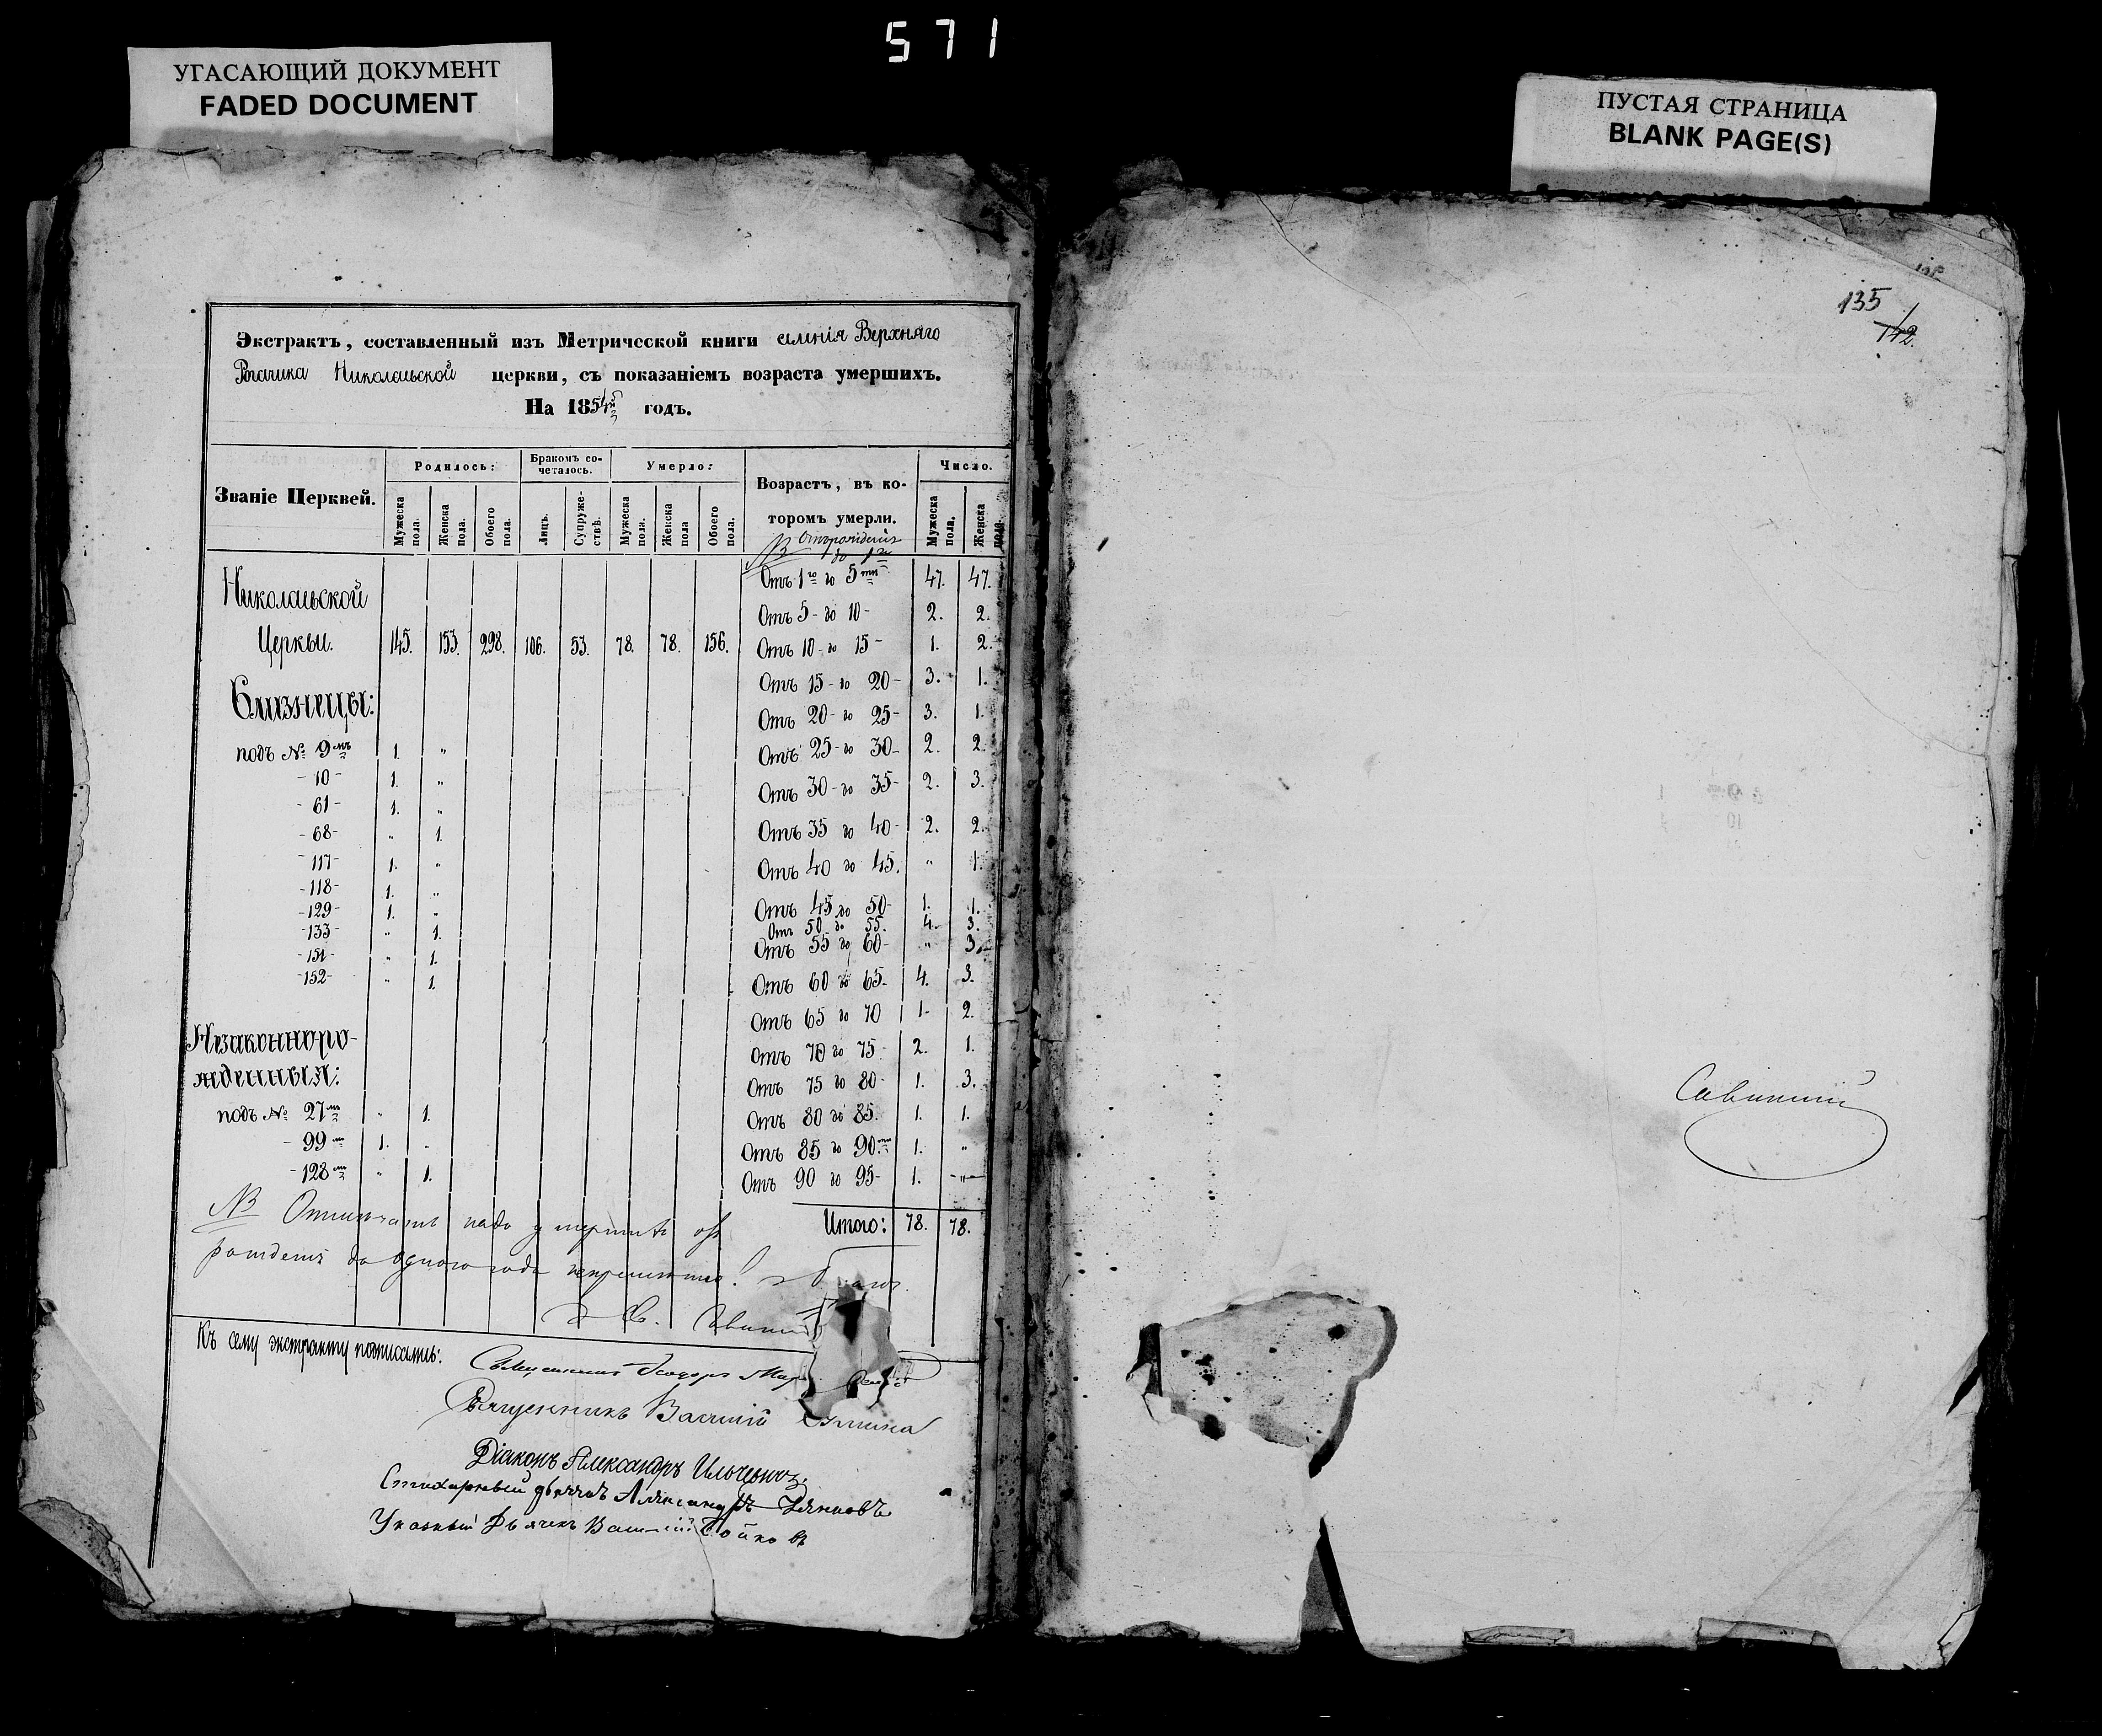 571
УГАСАЮЩИЙ ДОКУМЕНТ
FADED DOCUMENT
ПУСТАЯ СТРАНИЦА
BLANK PAGE(S)
135
142.
Экстрактъ, составленный изъ Метрической книги селенія Верхняго
Рогачика Николаевской церкви, съ показаніемъ возраста умершихъ.
На 1854й годъ.
Званіе Церквей. Родилось: Бракомъ сочеталось. Умерло: Возрастъ, въ которомъ умерли. Число.
Мужеска пола. Женска пола. Обоего пола. Лицъ. Супружествъ. Мужеска пола. Женска пола Обоего пола. Мужеска пола. Женска пола.
NB Отъ рожденія
до 1го
Николаевской Отъ 1го до 5ти 47. 47.
Отъ 5- до 10- 2. 2.
Церкви. 145. 153. 298. 106. 53. 78. 78. 156. Отъ 10- до 15- 1. 2.
Близнецы: Отъ 15- до 20- 3. 1.
Отъ 20- до 25- 3. 1.
подъ № 9мъ 1. " Отъ 25- до 30- 2. 2.
-10- 1. " Отъ 30- до 35- 2. 3.
-61- 1. "
-68- " 1. Отъ 35 до 40- 2. 2.
-117- 1. " Отъ 40 до 45. " 1.
-118- 1. "
-129- 1. " Отъ 45 до 50- 1. 1.
-133- " 1. Отъ 50 до 55. 4. 3.
-151- " 1. Отъ 55 до 60- " 3.
-152- " 1. Отъ 60 до 65- 4. 3.
Отъ 65 до 70 1- 2.
Незаконноро- Отъ 70 до 75- 2. 1.
жденныя: Отъ 75 до 80- 1. 3.
подъ № 27мъ " 1. Отъ 80 до 85. 1. 1.
-99мъ 1. " Отъ 85 до 90ти 1. "
-128мъ " 1. Отъ 90 до 95- 1. "
Итого: 78. 78.
NB надо отъ
рожденія до одного года
Къ сему экстракту подписались:
Священникъ
Священникъ Василій
Діаконъ Александръ Ильчевичъ.
Стихарный дьячекъ Александръ
Указный Дьячекъ Василій Бойковъ
Савицкій